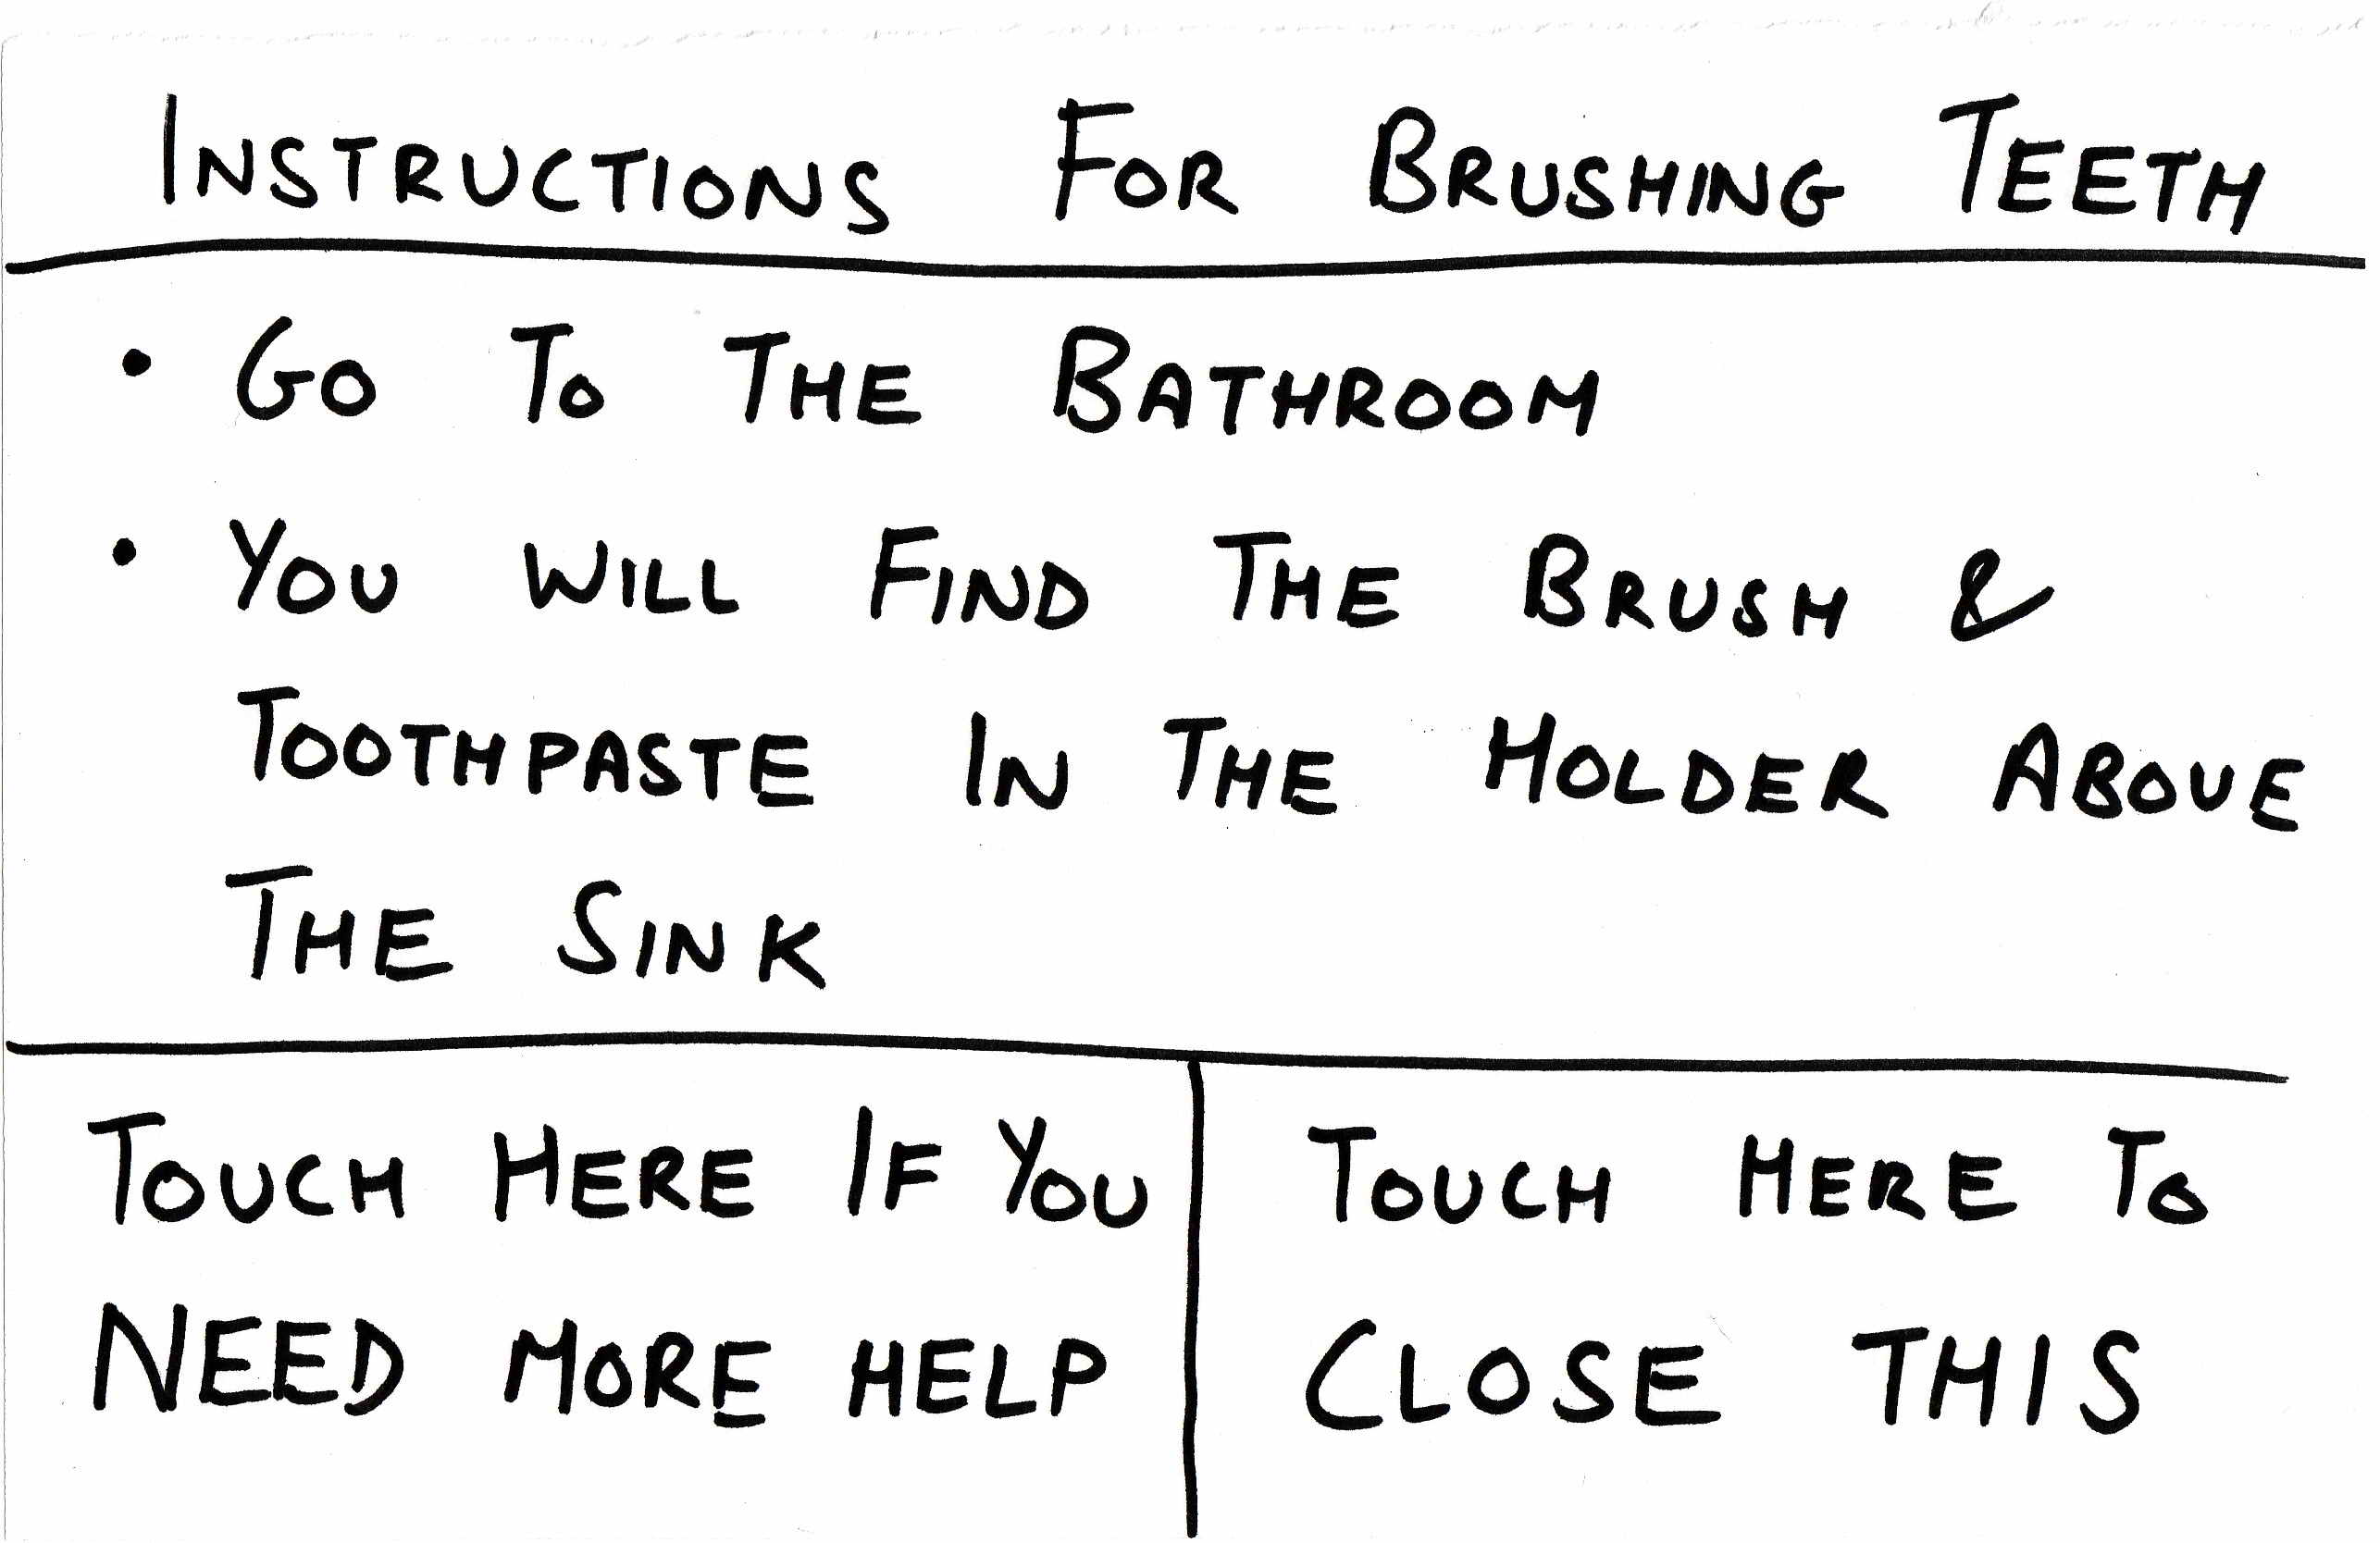 INSTRUCTIONS FOR BRUSHING TEETH
• GO TO THE BATHROOM
• YOU WILL FIND THE BRUSH &
TOOTHPASTE IN THE HOLDER ABOVE
THE SINK
TOUCH HERE IF YOU
NEED MORE HELP
TOUCH HERE TO
CLOSE THIS